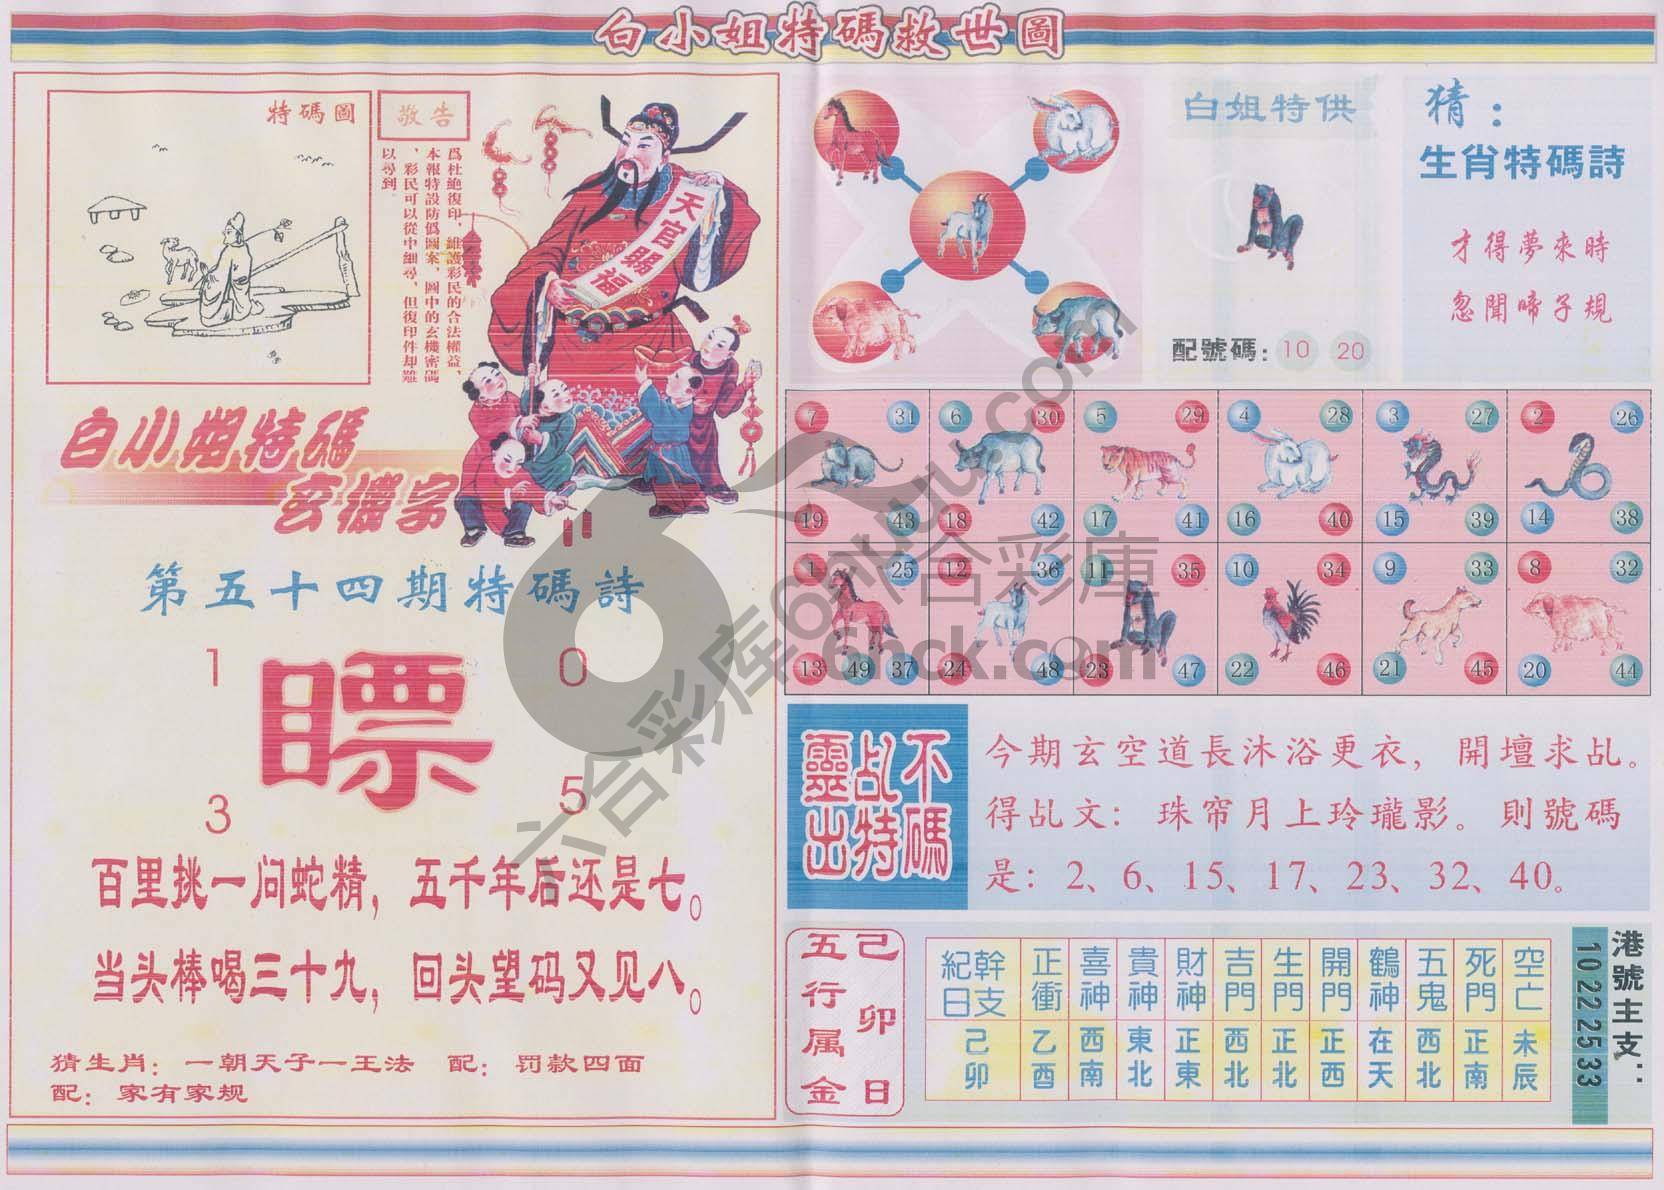 白小姐特碼救世圖
特碼圖
敬告
爲杜絶復印，維護彩民的合法權益，
本報特設防僞圖案，圖中的玄機密碼
，彩民可以從中細尋，但復印件却難
以尋到。
天官賜福
白小姐特碼
玄機字
第五十四期特碼詩
1
0
瞟
3
5
百里挑一问蛇精，五千年后还是七。
当头棒喝三十九，回头望码又见八。
猜生肖：一朝天子一王法 配：罚款四面
配：家有家规
白姐特供
配號碼：10 20
猜：
生肖特碼詩
才得夢來時
忽聞啼子規
7 31 6 30 5 29 4 28 3 27 2 26
19 43 18 42 17 41 16 40 15 39 14 38
1 25 12 36 11 35 10 34 9 33 8 32
13 49 37 24 48 23 47 22 46 21 45 20 44
不碼
乩特
靈出
今期玄空道長沐浴更衣，開壇求乩。
得乩文：珠帘月上玲瓏影。則號碼
是：2、6、15、17、23、32、40。
己卯日
五行属金
幹支紀日 正衝 喜神 貴神 財神 吉門 生門 開門 鶴神 五鬼 死門 空亡
己卯 乙酉 西南 東北 正東 西北 正北 正西 在天 西北 正南 未辰
港號主支：
10 22 25 33
六合彩库 6hkku.com
六合彩庫
6hck.com